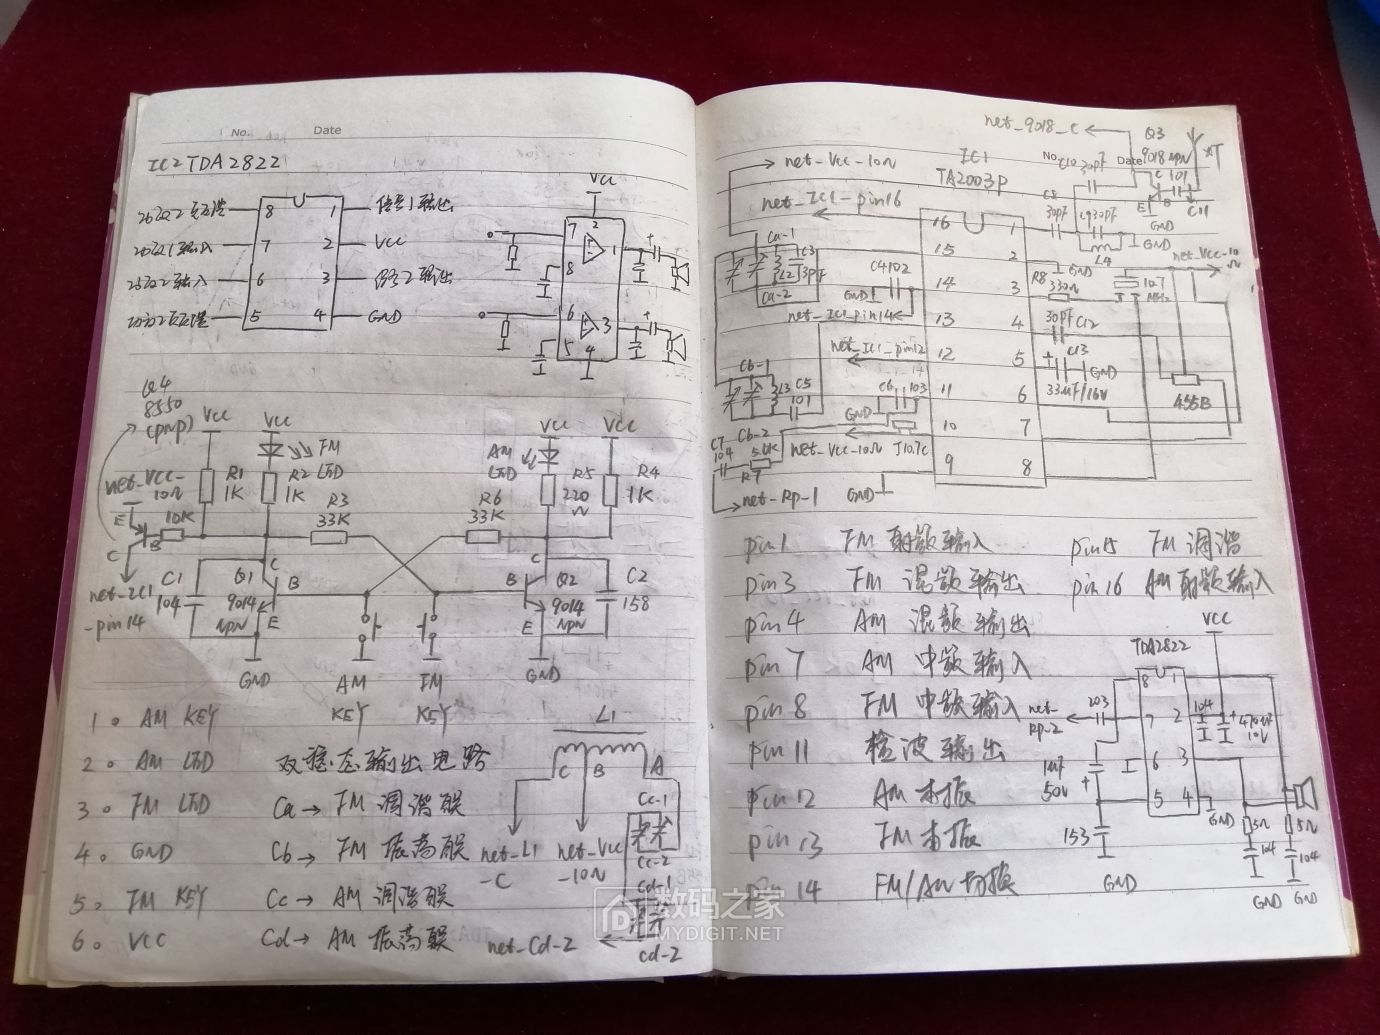 No.
Date
IC2 TDA2822
8
1
信号1输出
7
2
VCC
6
3
5
4
GND
VCC
7
2
1
8
6
3
5
4
Q4
8550
(pnp)
VCC
VCC
FM
LED
VCC
AM
LED
VCC
net-VCC-
10Ω
R1
1K
R2
1K
R3
33K
R6
33K
R5
220
Ω
R4
1K
E
10K
C
B
net-IC1
-pin14
C1
104
Q1
9014
NPN
C
B
E
GND
C
B
Q2
9014
NPN
E
GND
C2
158
AM
KEY
FM
KEY
1。 AM KEY
2。 AM LED
3。 FM LED
4。 GND
5。 FM KEY
6。 VCC
双稳态输出电路
Ca→ FM 调谐联
Cb→ FM 振荡联
Cc→ AM 调谐联
Cd→ AM 振荡联
L1
C
B
A
net-L1
-C
net-VCC
-10Ω
Cc-1
Cc-2
Cd-1
net-Cd-2
Cd-2
net-9018-C
Q3
9018 NPN
No.
C10 30pF
Date
C
101
E
B
C11
GND
net-VCC-10Ω
IC1
TA2003P
net-IC1-pin16
C8
30pF
C9 30pF
GND
L4
net-VCC-10
Ω
16
1
15
2
14
3
13
4
12
5
11
6
10
7
9
8
Ca-1
C3
L2
3pF
Ca-2
C4102
GND
net-IC1pin14
GND
R8
330Ω
10.7
MHz
30pF C12
C13
GND
33uF/16V
455B
net-IC1-pin12
Cb-1
L3
C5
101
C6
103
GND
Cb-2
C7
104
5.1K
R7
net-VCC-10Ω
J10.7C
net-Rp-1
GND
pin1 FM 射频输入
pin15 FM 调谐
pin3 FM 混频输出
pin16 AM射频输入
pin4 AM 混频输出
pin7 AM 中频输入
pin8 FM 中频输入
pin11 检波输出
pin12 AM 本振
pin13 FM 本振
pin14 FM/AM切换
VCC
TDA2822
8
1
7
2
6
3
5
4
net-
Rp-2
203
104
470uF
10V
1uF
50V
153
GND
GND
5Ω
104
5Ω
104
GND
GND
数码之家
MYDIGIT.NET